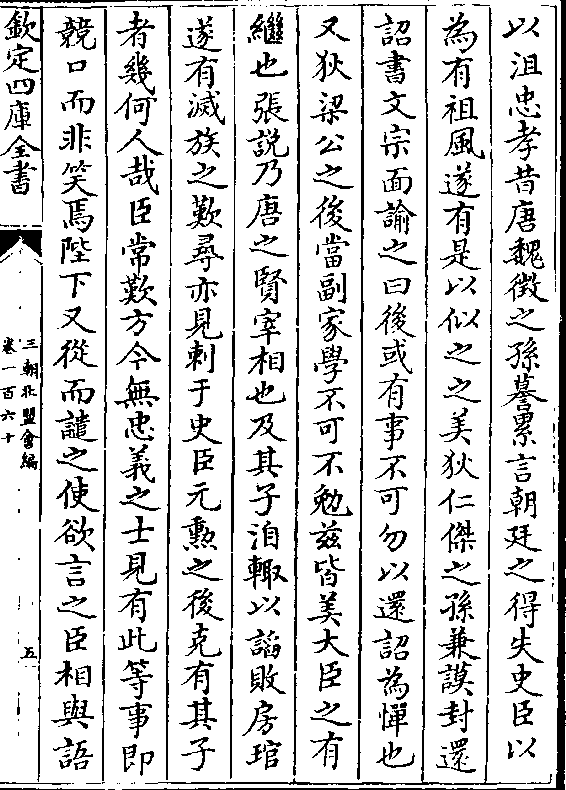 以沮忠孝昔唐魏徴之孫謩累言朝廷之得失史臣以
為有祖風遂有是以似之之美狄仁傑之孫兼謨封還
詔書文宗面諭之曰後或有事不可勿以還詔為憚也
又狄梁公之後當副家學不可不勉兹皆美大臣之有
繼也張説乃唐之賢宰相也及其子洎輙以謟敗房琯
遂有滅族之歎尋亦見刺于史臣元勲之後克有其子
者幾何人哉臣常歎方今無忠義之士見有此等事即
競口而非笑焉陛下又從而譴之使欲言之臣相與語
欽定四庫全書
三朝北盟會編
卷一百六十
五